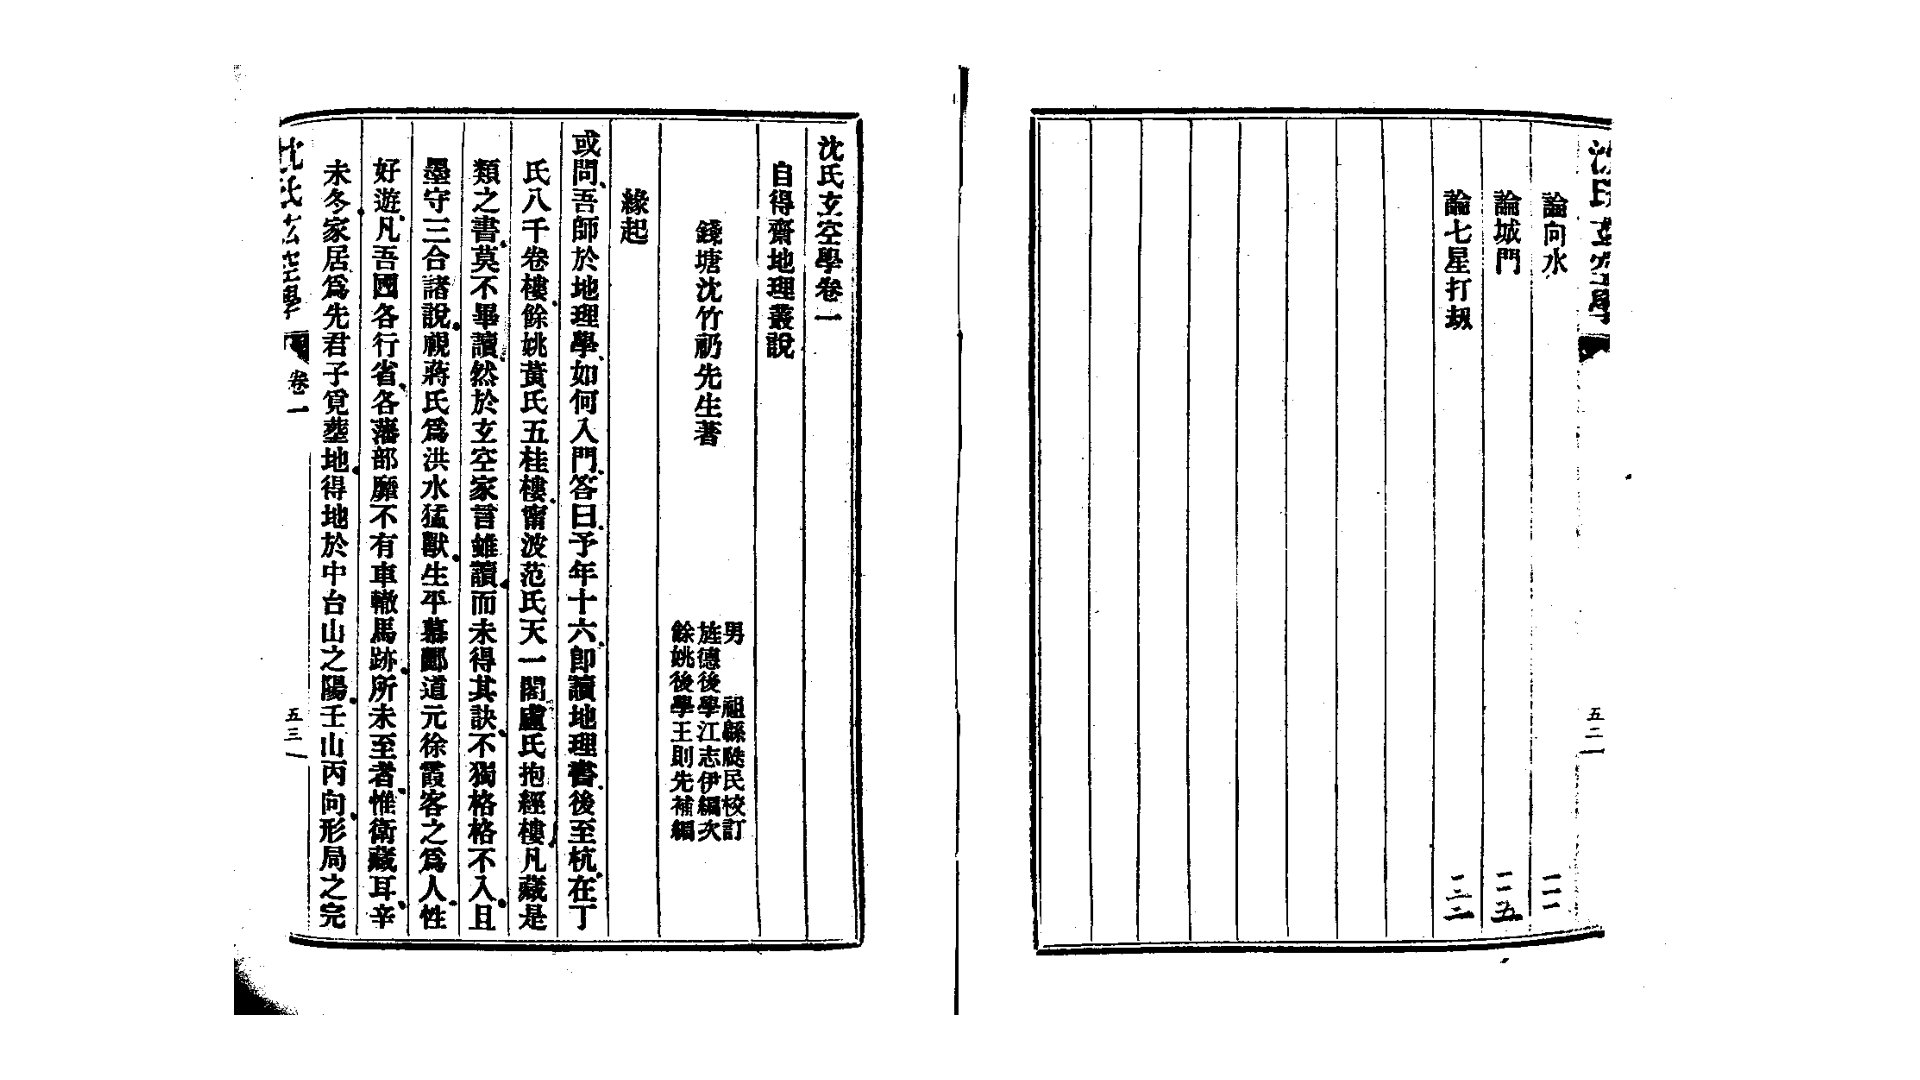 沈氏玄空學
論向水
二一一
論城門
二一五
論七星打刼
二二二
五二
沈氏玄空學卷一
自得齋地理叢說
錢塘沈竹礽先生著
男　祖緜瓞民校訂
旌德後學江志伊編次
餘姚後學王則先補編
緣起
或問、吾師於地理學、如何入門、答曰、予年十六、卽讀地理書、後至杭、在丁
氏八千卷樓、餘姚黃氏五桂樓、甯波范氏天一閣、盧氏抱經樓、凡藏是
類之書、莫不畢讀、然於玄空家言、雖讀、而未得其訣、不獨格格不入、且
墨守三合諸說、視蔣氏爲洪水猛獸、生平慕酈道元徐霞客之爲人、性
好遊、凡吾國各行省、各藩部、靡不有車轍馬跡、所未至者、惟衛藏耳、辛
未冬、家居爲先君子覓葬地、得地於中台山之陽、壬山丙向、形局之完
沈氏玄空學
卷一
五三